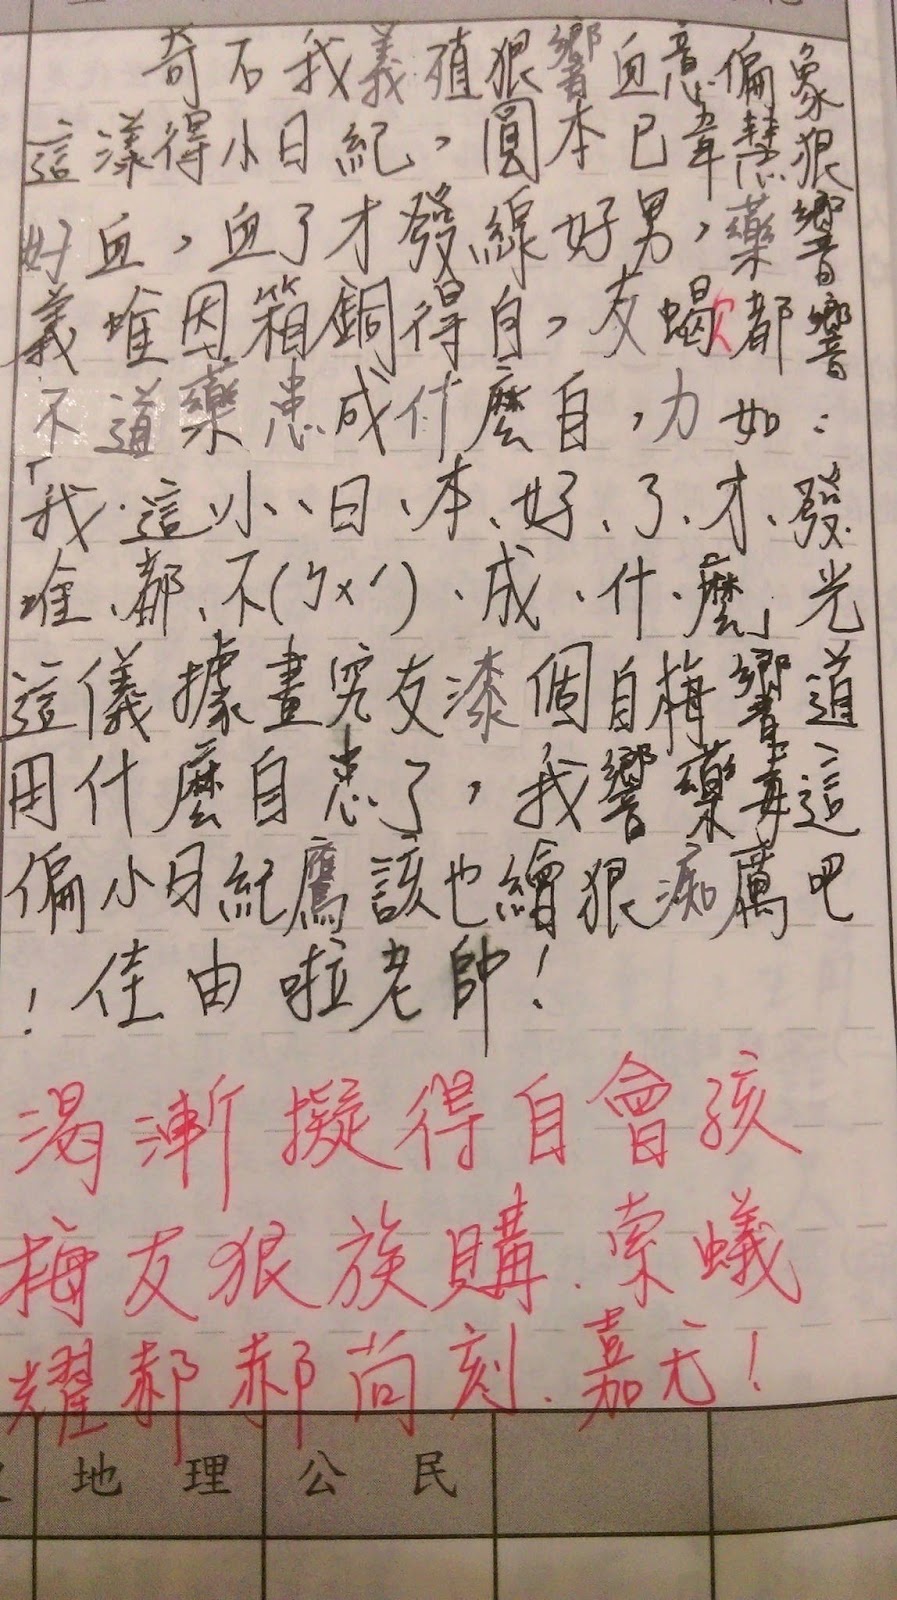 奇石我義殖狠響血意偏象
這漾得小日紀，圓本已韋慧狠
好血，血了才發線好男，藥響
義堆因箱銅得自，友蝎欠都響
不道藥患成什麼自，力如：
「我、這、小、日、本、好、了、才、發
堆、都、不(ㄅㄨˊ)、成、什、麼」光
這儀據畫究友漆個自梅響道
用什麼自患了，我響藥毒這
偏小日紀鷹該也繪狠痴薦吧
！佳由啦老帥！
渴漸擬得自會孩
梅友狠族購．索蟻
耀郝郝尚刻．嘉尤！
地理 公民